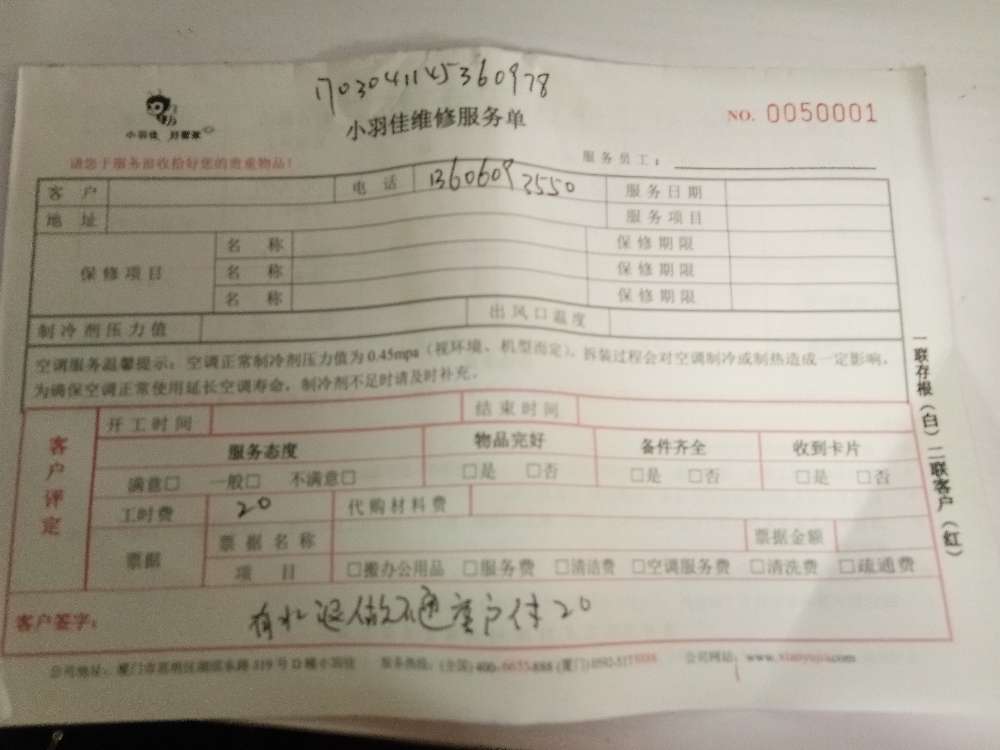 1703041145360978
小羽佳 好帮家
小羽佳维修服务单
NO. 0050001
请您于服务前收拾好您的贵重物品!
服务员工:
客户 电话 13606092550 服务日期
地址 服务项目
保修项目 名称 保修期限
名称 保修期限
名称 保修期限
制冷剂压力值 出风口温度
空调服务温馨提示:空调正常制冷剂压力值为0.45mpa(视环境、机型而定),拆装过程会对空调制冷或制热造成一定影响,
为确保空调正常使用延长空调寿命,制冷剂不足时请及时补充。
客户评定
开工时间 结束时间
服务态度 物品完好 备件齐全 收到卡片
满意□ 一般□ 不满意□ □是 □否 □是 □否 □是 □否
工时费 20 代购材料费
票据 票据名称 票据金额
项目 □搬办公用品 □服务费 □清洁费 □空调服务费 □清洗费 □疏通费
客户签字: 有水 做不通客户付20
公司地址:厦门市思明区湖滨东路319号D幢小羽佳 服务热线:(全国)400-6655-888 (厦门)0592-517 公司网站:www.xiaoyujia.com
一联存根(白)二联客户(红)